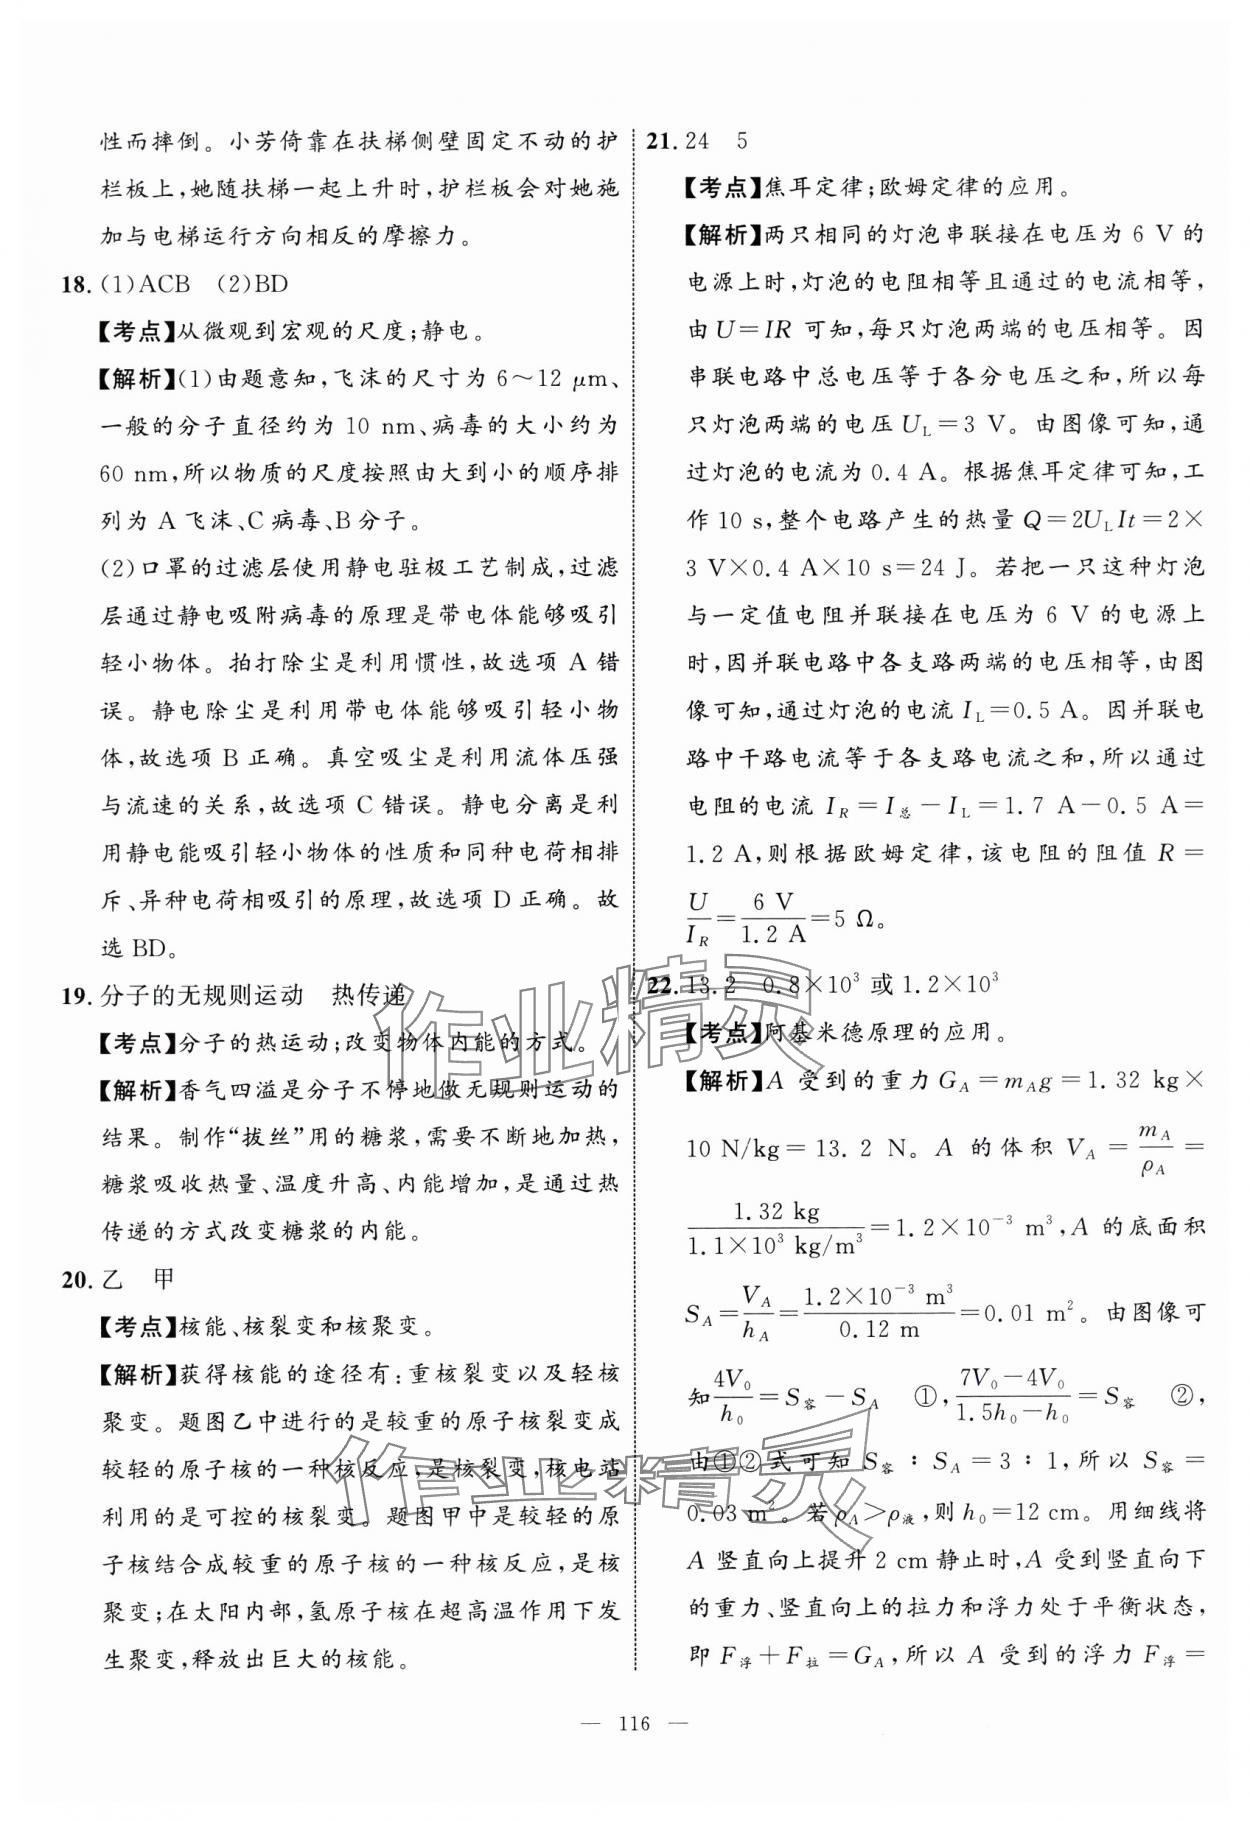 性而摔倒。小芳倚靠在扶梯侧壁固定不动的护
栏板上,她随扶梯一起上升时,护栏板会对她施
加与电梯运行方向相反的摩擦力。
18. (1)ACB (2)BD
【考点】从微观到宏观的尺度;静电。
【解析】(1)由题意知,飞沫的尺寸为 6～12 μm、
一般的分子直径约为 10 nm、病毒的大小约为
60 nm,所以物质的尺度按照由大到小的顺序排
列为 A 飞沫、C 病毒、B 分子。
(2)口罩的过滤层使用静电驻极工艺制成,过滤
层通过静电吸附病毒的原理是带电体能够吸引
轻小物体。拍打除尘是利用惯性,故选项 A 错
误。静电除尘是利用带电体能够吸引轻小物
体,故选项 B 正确。真空吸尘是利用流体压强
与流速的关系,故选项 C 错误。静电分离是利
用静电能吸引轻小物体的性质和同种电荷相排
斥、异种电荷相吸引的原理,故选项 D 正确。故
选 BD。
19. 分子的无规则运动 热传递
【考点】分子的热运动;改变物体内能的方式。
【解析】香气四溢是分子不停地做无规则运动的
结果。制作“拔丝”用的糖浆,需要不断地加热,
糖浆吸收热量、温度升高、内能增加,是通过热
传递的方式改变糖浆的内能。
20. 乙 甲
【考点】核能、核裂变和核聚变。
【解析】获得核能的途径有:重核裂变以及轻核
聚变。题图乙中进行的是较重的原子核裂变成
较轻的原子核的一种核反应,是核裂变,核电站
利用的是可控的核裂变。题图甲中是较轻的原
子核结合成较重的原子核的一种核反应,是核
聚变;在太阳内部,氢原子核在超高温作用下发
生聚变,释放出巨大的核能。
21. 24 5
【考点】焦耳定律;欧姆定律的应用。
【解析】两只相同的灯泡串联接在电压为 6 V 的
电源上时,灯泡的电阻相等且通过的电流相等,
由 U=IR 可知,每只灯泡两端的电压相等。因
串联电路中总电压等于各分电压之和,所以每
只灯泡两端的电压 U_L=3 V。由图像可知,通
过灯泡的电流为 0.4 A。根据焦耳定律可知,工
作 10 s,整个电路产生的热量 Q=2U_L It=2×
3 V×0.4 A×10 s=24 J。若把一只这种灯泡
与一定值电阻并联接在电压为 6 V 的电源上
时,因并联电路中各支路两端的电压相等,由图
像可知,通过灯泡的电流 I_L=0.5 A。因并联电
路中干路电流等于各支路电流之和,所以通过
电阻的电流 I_R=I_总-I_L=1.7 A-0.5 A=
1.2 A,则根据欧姆定律,该电阻的阻值 R=
U/I_R=6 V/1.2 A=5 Ω。
22. 13.2 0.8×10³ 或 1.2×10³
【考点】阿基米德原理的应用。
【解析】A 受到的重力 G_A=m_A g=1.32 kg×
10 N/kg=13.2 N。A 的体积 V_A=m_A/ρ_A=
1.32 kg/1.1×10³ kg/m³=1.2×10⁻³ m³,A 的底面积
S_A=V_A/h_A=1.2×10⁻³ m³/0.12 m=0.01 m²。由图像可
知 4V₀/h₀=S_容-S_A ①,7V₀-4V₀/1.5h₀-h₀=S_容 ②,
由①②式可知 S_容∶S_A=3∶1,所以 S_容=
0.03 m²。若 ρ_A>ρ_液,则 h₀=12 cm。用细线将
A 竖直向上提升 2 cm 静止时,A 受到竖直向下
的重力、竖直向上的拉力和浮力处于平衡状态,
即 F_浮+F_拉=G_A,所以 A 受到的浮力 F_浮=
— 116 —
作业精灵
作业精灵